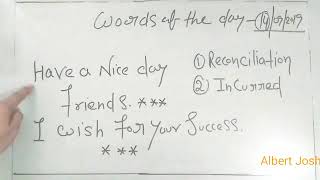 Words of the day - 14/07/2019
Have a Nice day
Friends. ***
I wish for your Success.
***
① Reconciliation
② Incurred
Albert Josh